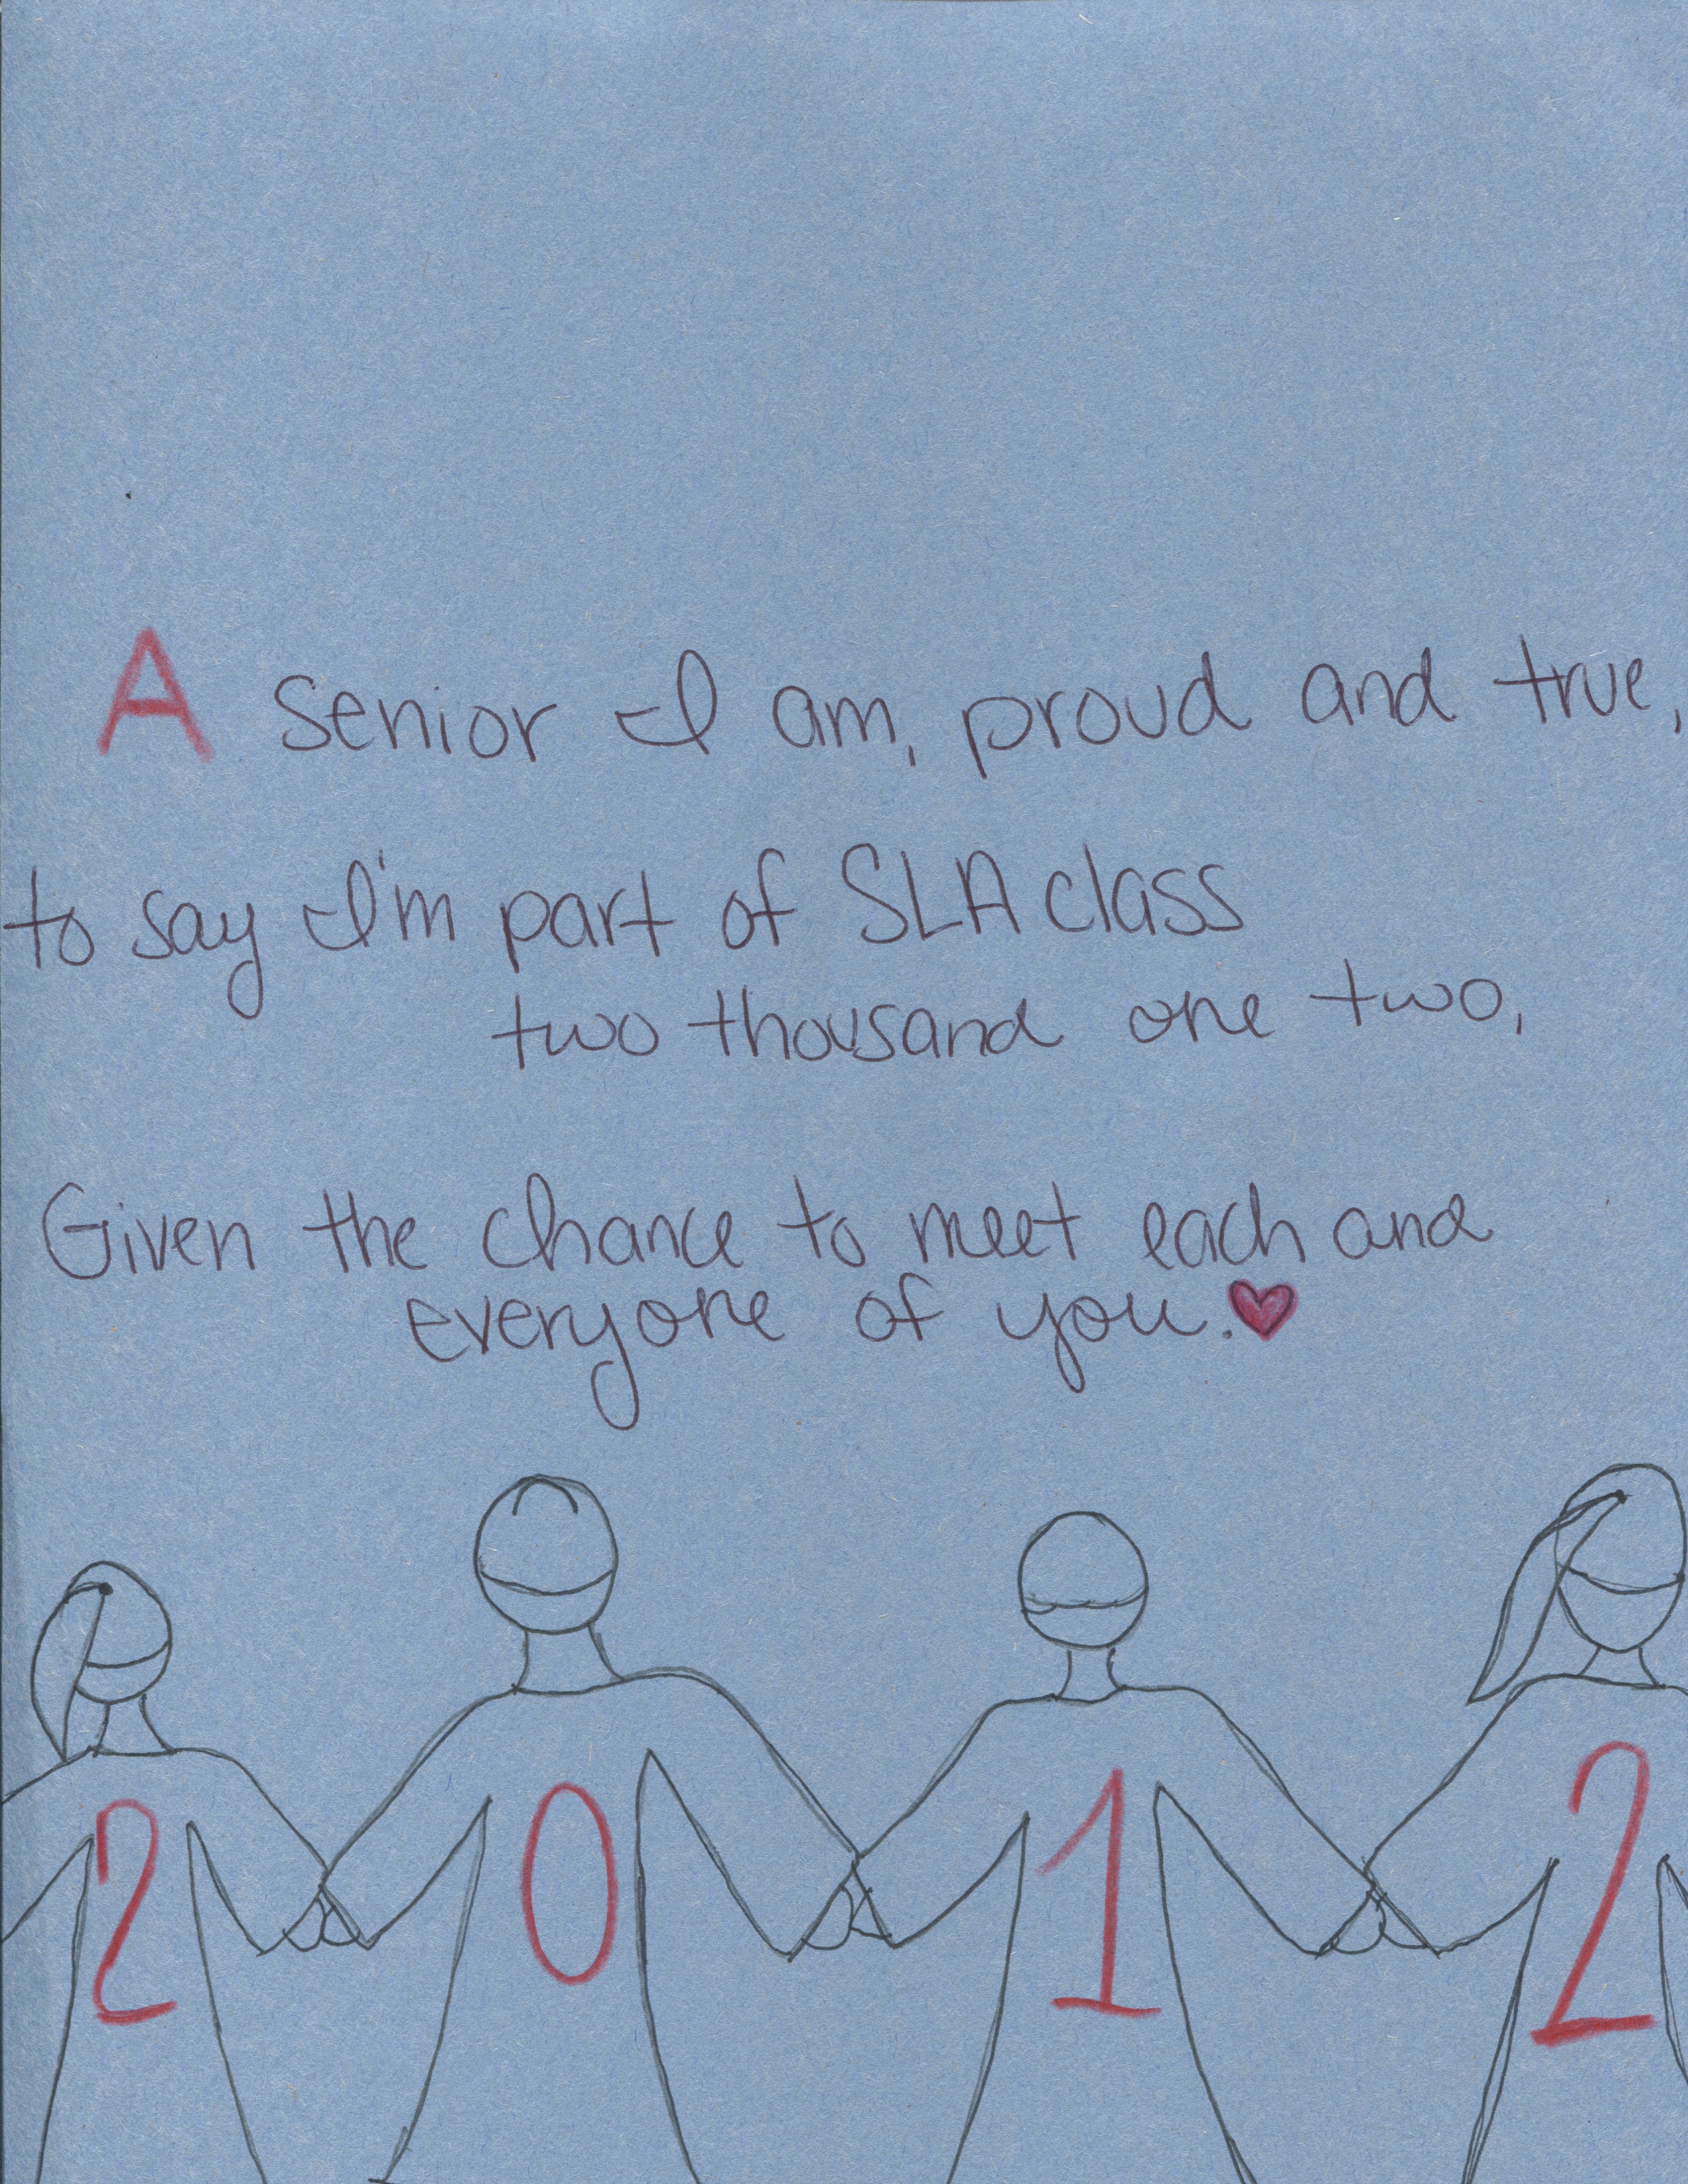 A senior I am, proud and true,
to say I'm part of SLA class
two thousand one two,
Given the chance to meet each and
everyone of you.
2 0 1 2